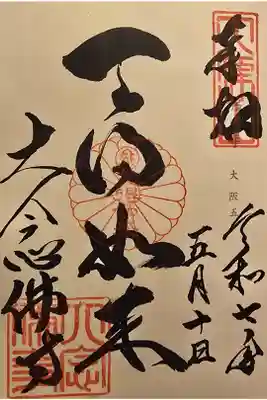 奉拝
大阪五
令和七年
五月十日
天得如来
大念佛寺